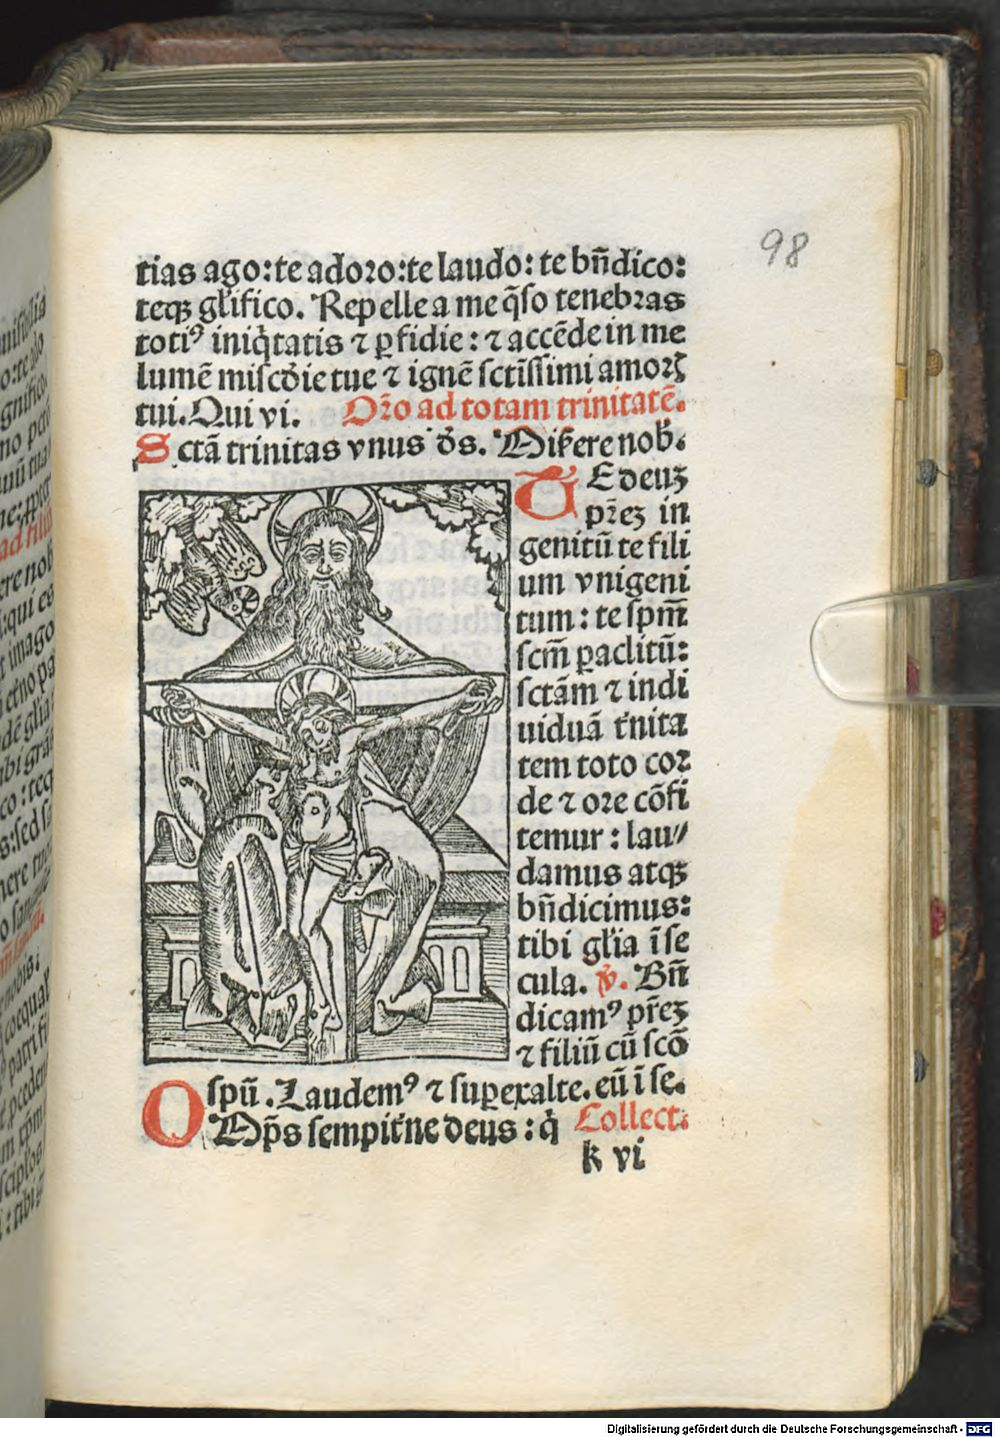 98
tias ago: te adoro: te laudo: te bn̄dico:
teqꝫ gl̄ifico. Repelle a me q̄so tenebras
totiꝰ iniq̇tatis ⁊ ꝑfidie: ⁊ accēde in me
lumē mīscd̄ie tue ⁊ ignē sctīssimi amorꝭ
tui. Qui vi. Or̄o ad totam trinitatē.
Sctā trinitas vnus d̄s. Mis̄ere nob̄.
TE deuꝫ
pr̄eꝫ in
genitū te fili
um vnigeni
tum: te sp̄m̄
scm̄ ꝑaclitū:
sctām ⁊ indi
uiduā tr̄nita
tem toto cor
de ⁊ ore cōfi
temur: lau⸗
damus atqꝫ
bn̄dicimus:
tibi gl̄ia ī se
cula. ꝟ. Bn̄
dicamꝰ pr̄eꝫ
⁊ filiū cū scō
spū. Laudemꝰ ⁊ suꝑexalte. eū ī se.
OMp̄s sempit̄ne deus: q̇ Collect.
k vi
Digitalisierung gefördert durch die Deutsche Forschungsgemeinschaft - DFG